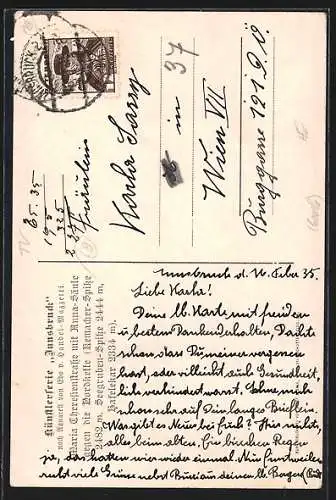 INNSBRUCK
Fräulein
Karla Sarry
in 37
Wien VII
Burggasse 121 9.
Künstlerserie "Innsbruck"
nach Aquarell von Edo v. Handel-Mazzetti.
Maria Theresienstraße mit Anna-Säule
gegen die Nordkette (Remacher-Spitze
2489 m, Seegruben-Spitze 2444 m,
Hafelekar 2334 m).
Innsbruck d. 16. Feber 35.
Liebe Karla!
Deine lb. Karte mit Freuden
u besten Danken erhalten, Dachte
schon, dass Du meiner vergessen
hast, oder vielleicht auch Gesundheit-
lich verhindert warst. Sehne mich
schon sehr auf Dein langes Brieflein.
Was gibt es Neues bei Euch? Hier nichts,
alles beim alten. Ein bischen Regen
ja, das hatten wir wieder einmal. Nun
recht viele Grüsse nebst aus deinen lb. Bergen